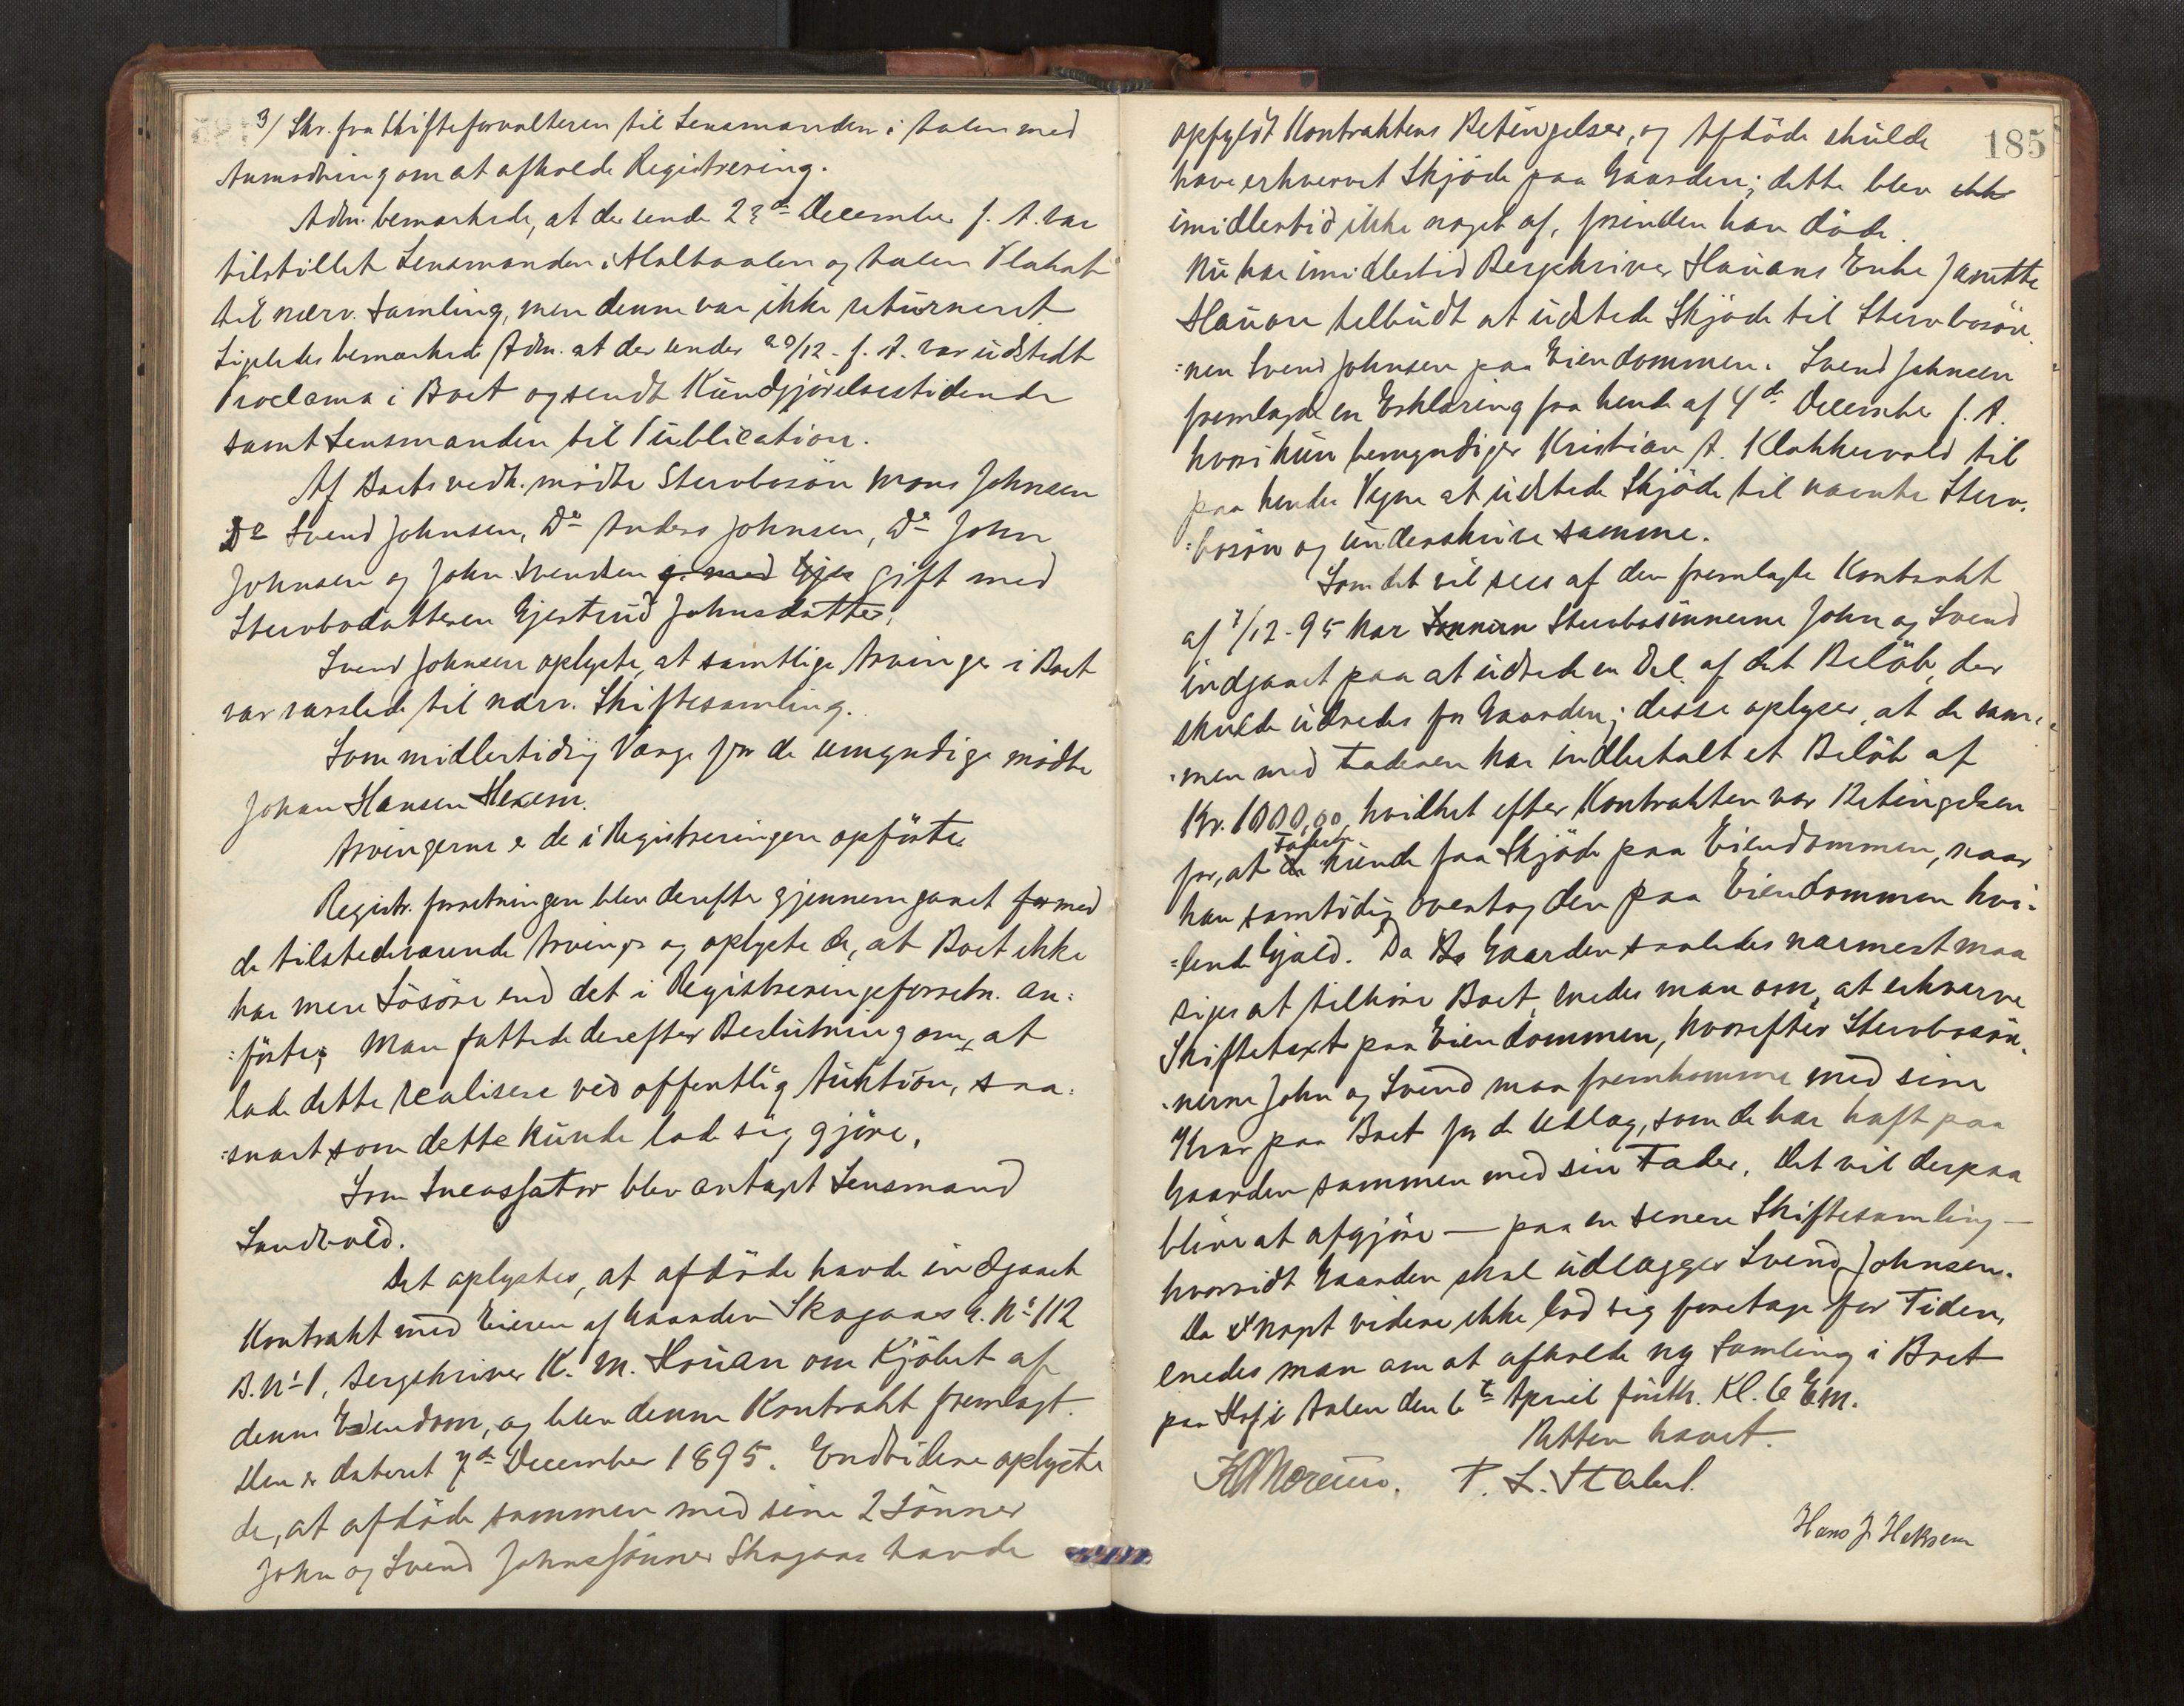 3/ Skr. fra Skifteforvalteren til Lensmanden i Aalen med
Anmodning om at afholde Registrering.
Adm. bemærkede, at der under 23de December f. A. var
tilstillet Lensmanden i Holtaalen og Aalen Plakat
til nærv. Samling, men denne var ikke returneret.
Ligeledes bemærkede Adm. at der under 20/12 f. A. var udstedt
Proclama i Boet og sendt Kundgjörelsestidende
samt Lensmanden til Publication.
Af Boets vedk. mödte Stervbosön Mons Johnsen
Do Svend Johnsen, Do Anders Johnsen, Do John
Johnsen og John Svendsen g. med Gjer gift med
Stervbodatteren Gjertrud Johnsdatter.
Svend Johnsen oplyste, at samtlige Arvinger i Boet
var varslede til nærv. Skiftesamling.
Som midlertidig Værge for de umyndige mödte
Johan Hansen Hexem.
Arvingerne er de i Registreringen opförte.
Registr. forretningen blev derefter gjennemgaaet for med
de tilstedeværende Arvinger og oplyste de, at Boet ikke
har mere Lösöre end det i Registreringsforretn. an-
:förte; Man fattede derefter Beslutning om, at
lade dette realisere ved offentlig Auktion, saa-
:snart som dette kunde lade sig gjöre.
Som Incassator blev antaget Lensmand
Sandvold.
Det oplystes, at afdöde havde indgaaet
Kontrakt med Eieren af Gaarden Skogaas G. No 112
B. No 1, Bergskriver K. M. Hauan om Kjöbet af
denne Eiendom, og blev denne Kontrakt fremlagt.
Den er dateret 7de December 1895. Endvidere oplyste
de, at afdöde sammen med sine 2 Sönner
John og Svend Johnssönner Skogaas havde
185
opfyldt Kontraktens Betingelser, og Afdöde skulde
have erhvervet Skjöde paa Gaarden; dette blev ikke
imidlertid ikke noget af, forinden han döde.
Nu har imidlertid Bergskriver Hauans Enke Janette
Hauan tilbudt at udstede Skjöde til Stervbosön-
:nen Svend Johnsen paa Eiendommen. Svend Johnsen
fremlagde en Erklæring fra hende af 4de December f. A.
hvori hun bemyndiger Kristian A. Klokkervold til
paa hendes Vegne at udstede Skjöde til nævnte Sterv-
:bosön og underskrive samme.
Som det vil sees af den fremlagte Kontrakt
af 7/12-95 har Sønnerne Stervbosönnerne John og Svend
indgaaet paa at udrede en Del af det Belöb, der
skulde udredes for Gaarden; disse oplyser, at de sam-
:men med Faderen har indbetalt et Belöb af
Kr. 1000,00, hvilket efter Kontrakten var Betingelsen
for, at de Faderen kunde faa Skjöde paa Eiendommen, naar
han samtidig overtog den paa Eiendommen hvi-
:lende Gjæld. Da Bo Gaarden saaledes nærmest maa
siges at tilhöre Boet, enedes man om, at erhverve
Skiftetaxt paa Eiendommen, hvorefter Stervbosön-
:nerne John og Svend maa fremkomme med sine
Krav paa Boet for de Udlæg, som de har haft paa
Gaarden sammen med sin Fader. Det vil derpaa
blive at afgjöre — paa en senere Skiftesamling —
hvorvidt Gaarden skal udlægges Svend Johnsen.
Da Noget videre ikke lod sig foretage for Tiden,
enedes man om at afholde ny Samling i Boet
paa Hof i Aalen den 6te April förstk. Kl. 6 EM.
Retten hævet.
P. L. Stabel.
Hans J. Heksem